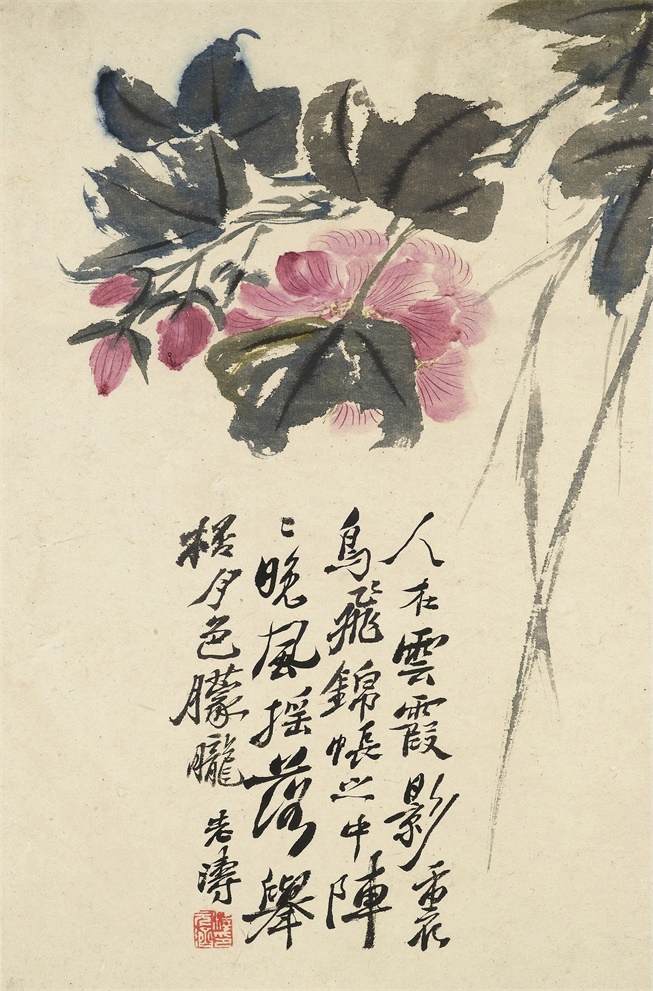 人在雲霞影裏
鳥飛錦帳之中陣
〻晚風搖落舉
桮夕色朦朧
老濤